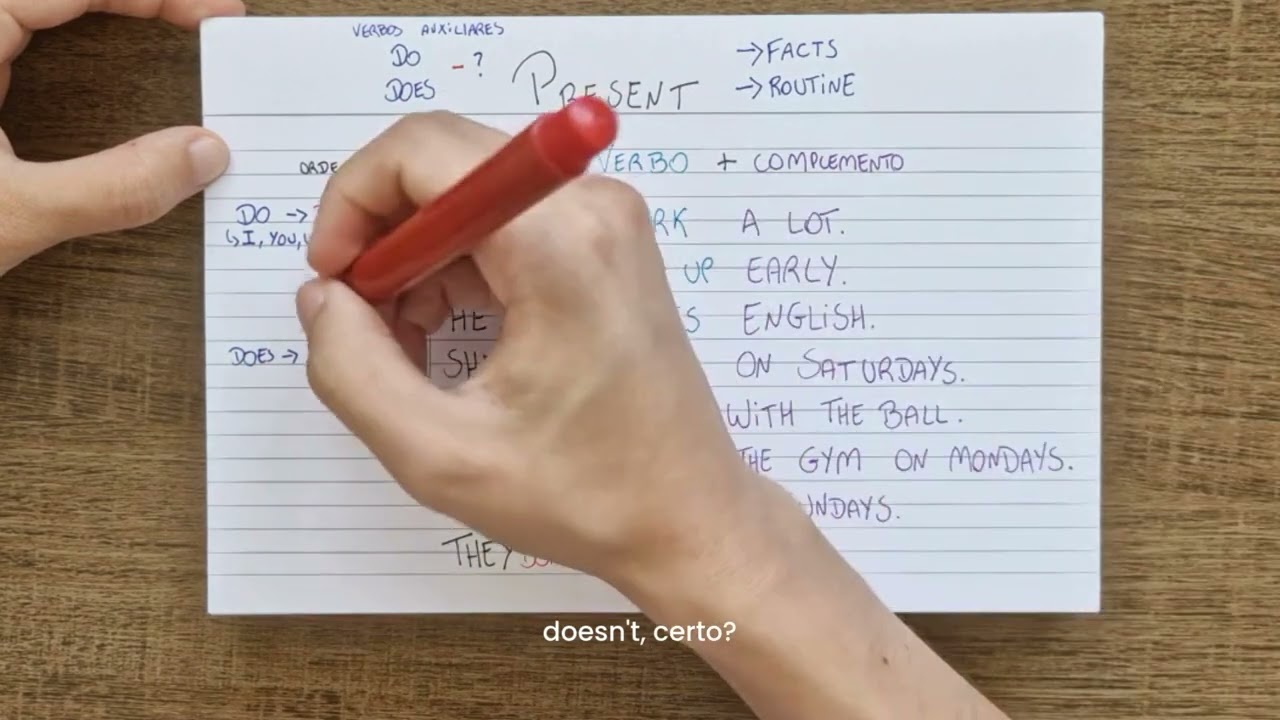 VERBOS AUXILIARES
DO - ?
DOES
PRESENT
→FACTS
→ROUTINE
VERBO + COMPLEMENTO
DO →
↳I, YOU,
A LOT.
UP EARLY.
HE ENGLISH.
DOES →
ON SATURDAYS.
WITH THE BALL.
THE GYM ON MONDAYS.
THEY
doesn't, certo?